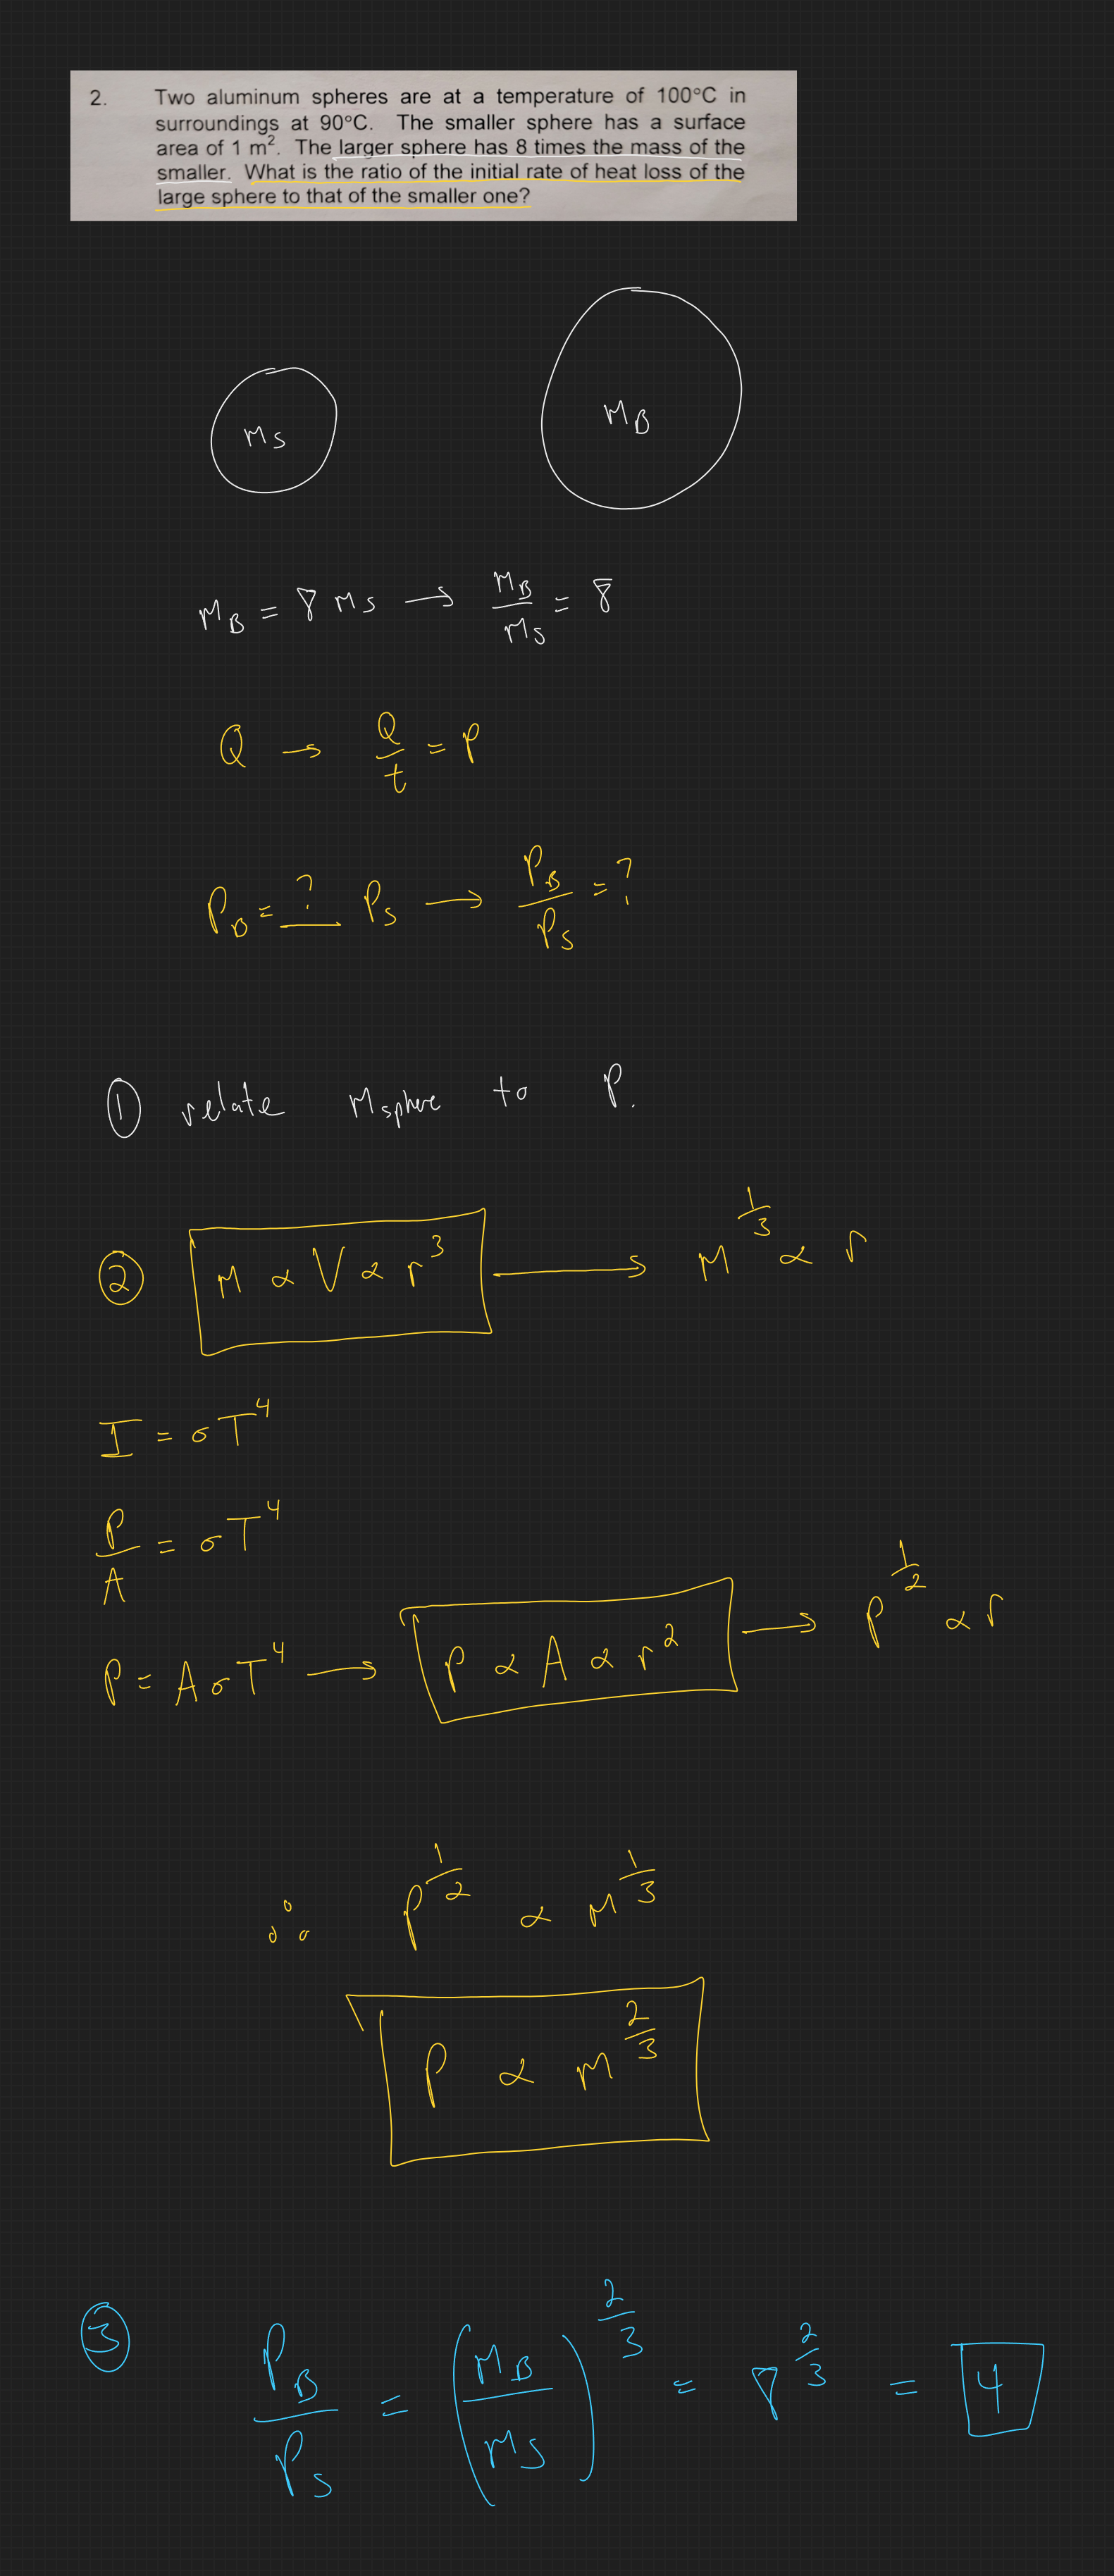 2. Two aluminum spheres are at a temperature of 100°C in
surroundings at 90°C. The smaller sphere has a surface
area of 1 m². The larger sphere has 8 times the mass of the
smaller. What is the ratio of the initial rate of heat loss of the
large sphere to that of the smaller one?
Ms
M_B
M_B = 8 Ms → M_B/Ms = 8
Q → Q/t = P
P_B = ? P_S → P_B/P_S = ?
① relate Msphere to P.
② M ∝ V ∝ r³ → M^(1/3) ∝ r
I = σT⁴
P/A = σT⁴
P = AσT⁴ → P ∝ A ∝ r² → P^(1/2) ∝ r
∴ P^(1/2) ∝ M^(1/3)
P ∝ M^(2/3)
③ P_B/P_S = (M_B/M_S)^(2/3) = 8^(2/3) = 4